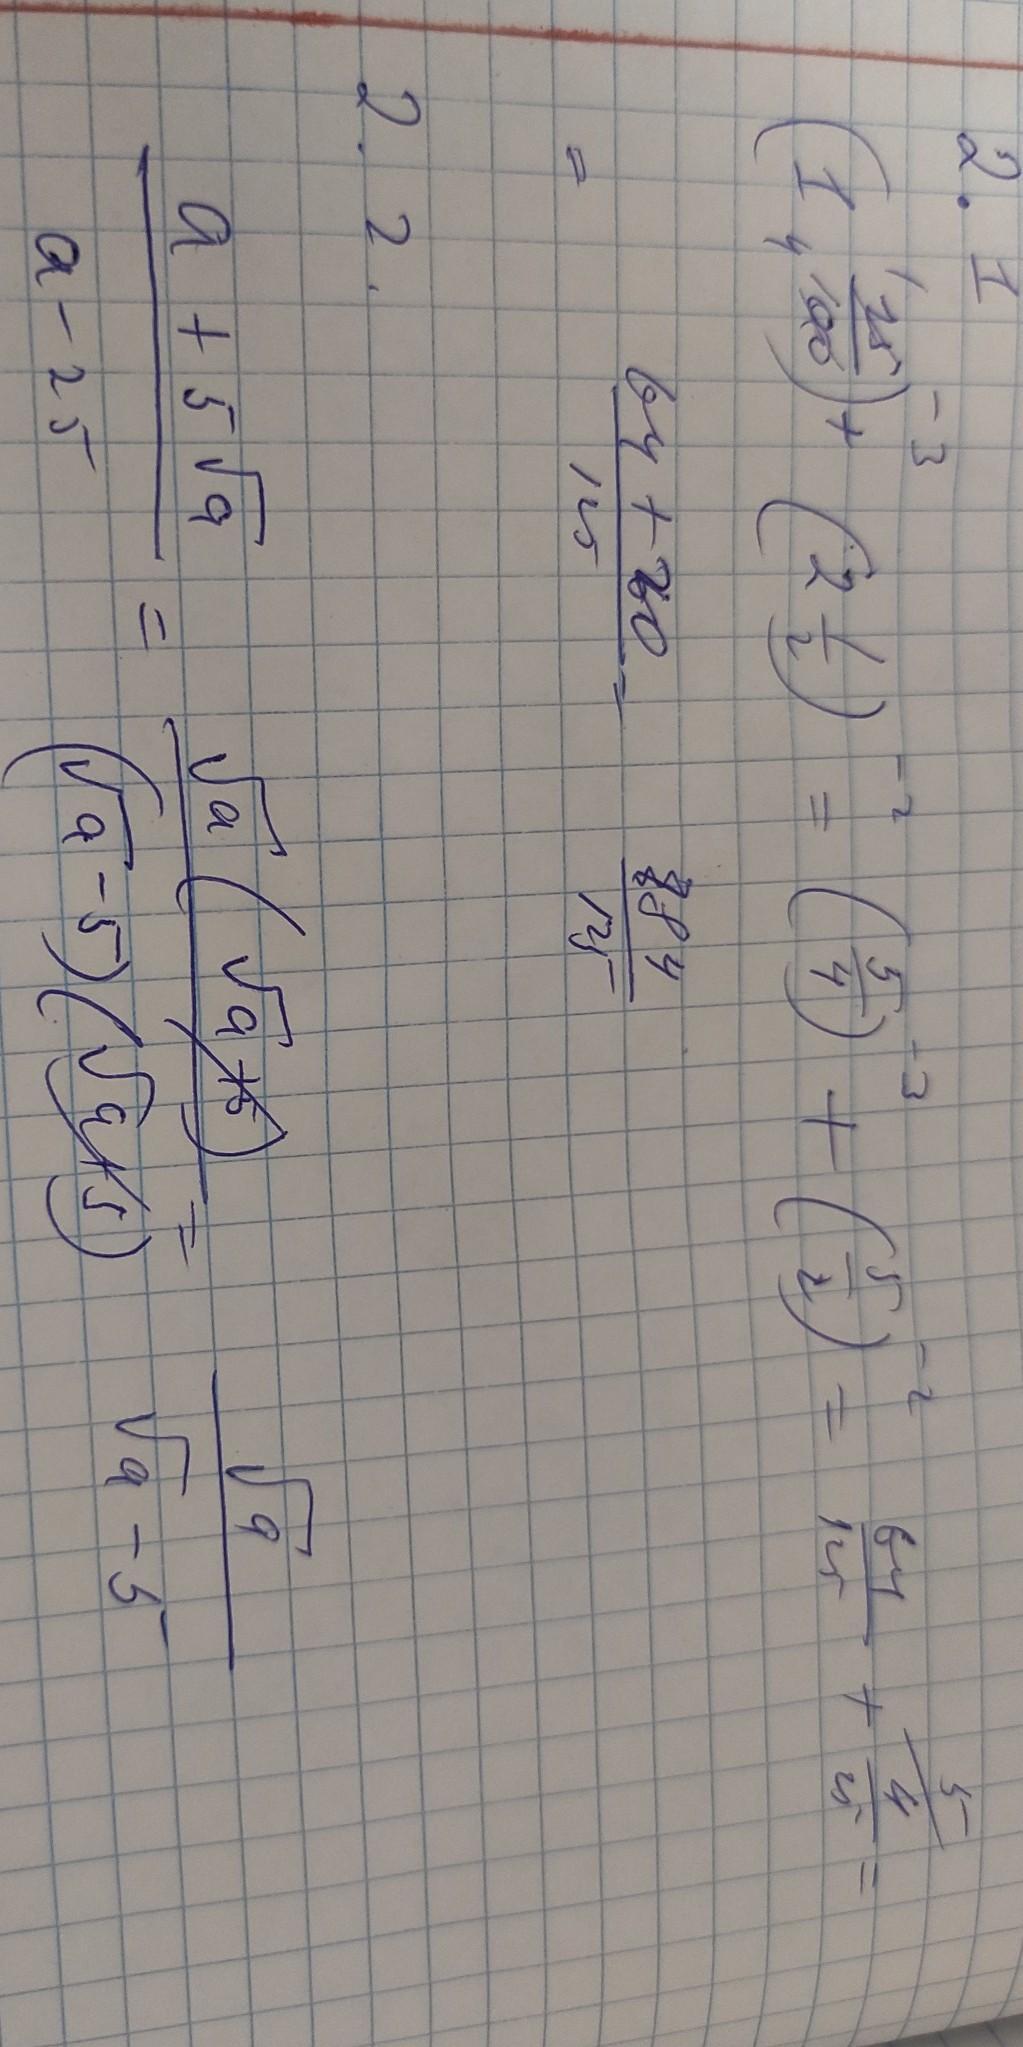 2. 1
(1 25/100)^-3 + (2 1/2)^-2 = (5/4)^-3 + (5/2)^-2 = 64/125 + 4/25 =
= (64 + 20)/125 = 84/125
2. 2.
(a + 5√a)/(a - 25) = (√a (√a + 5))/((√a - 5)(√a + 5)) = √a/(√a - 5)